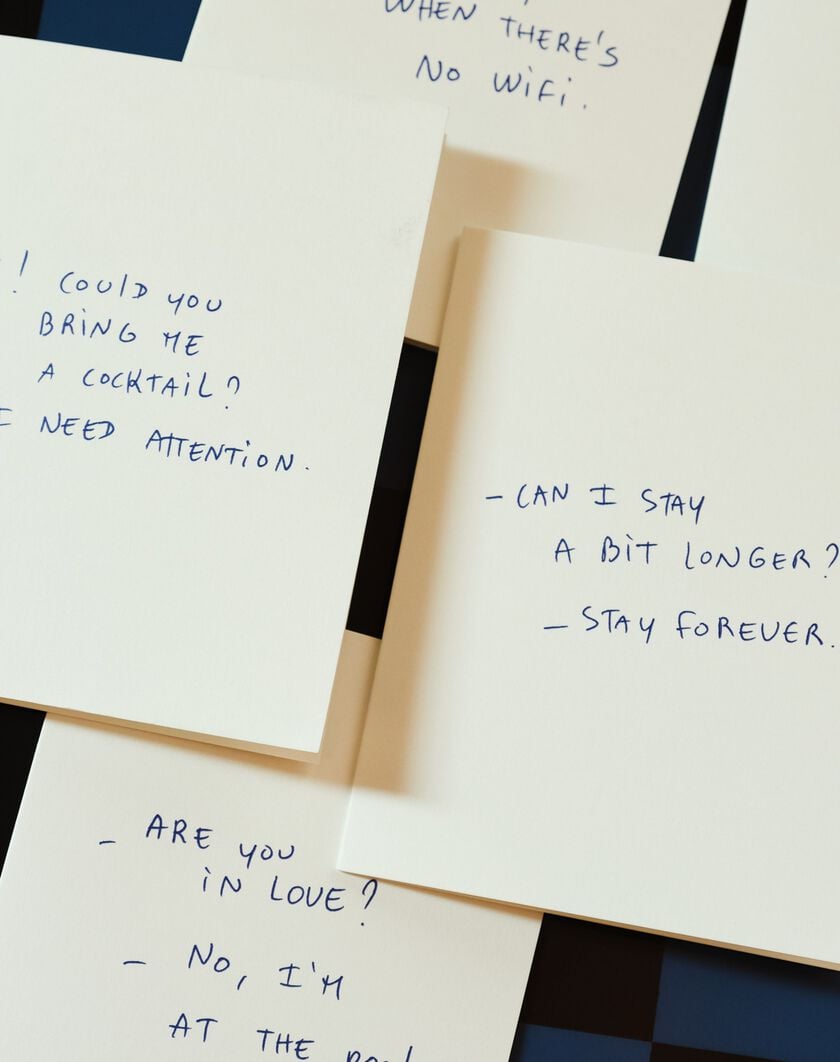 WHEN THERE'S
NO WiFi.
! COULD YOU
BRiNG ME
A COCKTAiL?
I NEED ATTENTiON.
– CAN I STAY
A BiT LONGER?
– STAY FOREVER.
– ARE YOU
iN LOVE?
– NO, I'M
AT THE